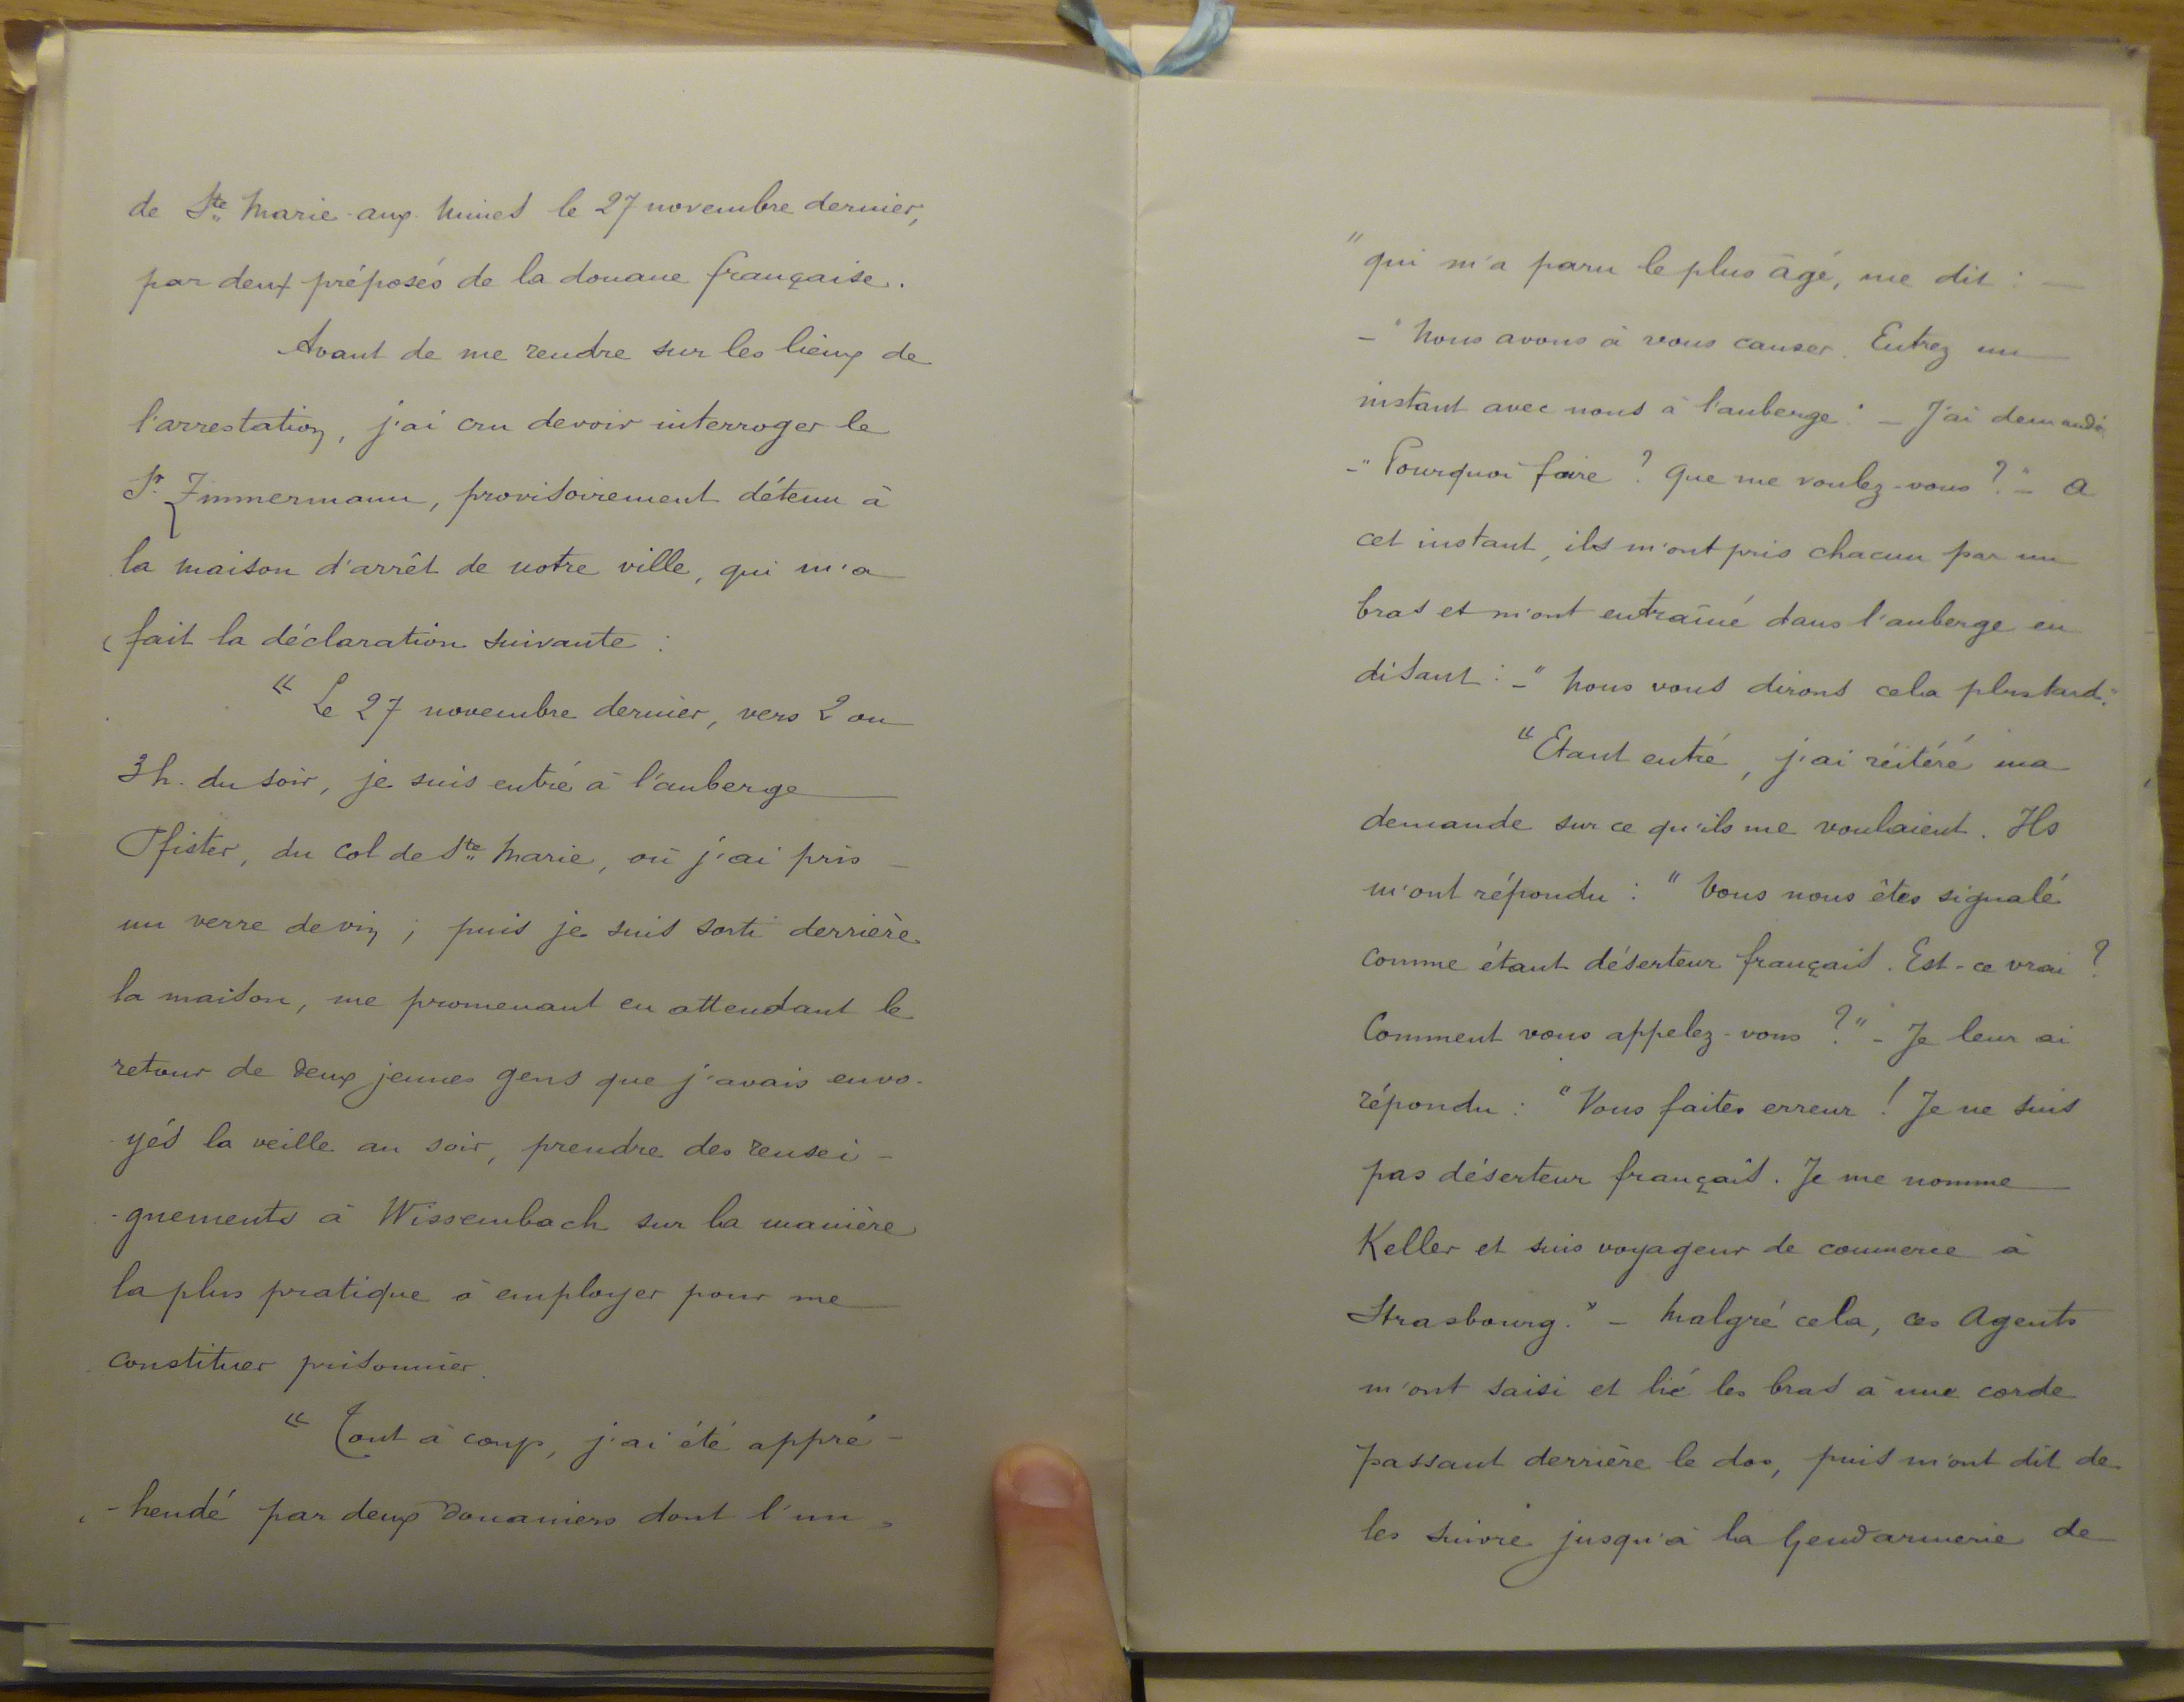 de Ste Marie-aux-Mines le 27 novembre dernier,
par deux préposés de la douane française.
Avant de me rendre sur les lieux de
l'arrestation, j'ai cru devoir interroger le
Sr. Zimmermann, provisoirement détenu à
la maison d'arrêt de notre ville, qui m'a
fait la déclaration suivante :
« Le 27 novembre dernier, vers 2 ou
3h. du soir, je suis entré à l'auberge
Pfister, du col de Ste Marie, où j'ai pris
un verre de vin ; puis je suis sorti derrière
la maison, me promenant en attendant le
retour de deux jeunes gens que j'avais envo-
-yés la veille au soir, prendre des rensei-
-gnements à Wissembach sur la manière
la plus pratique à employer pour me
constituer prisonnier.
« Tout à coup, j'ai été appré-
-hendé par deux Douaniers dont l'un,
" qui m'a paru le plus âgé, me dit : —
– " Nous avons à vous causer. Entrez un
instant avec nous à l'auberge." – J'ai demandé
– " Pourquoi faire ? Que me voulez-vous ?" – A
cet instant, ils m'ont pris chacun par un
bras et m'ont entraîné dans l'auberge en
disant : – " Nous vous dirons cela plus tard."
" Etant entré, j'ai réitéré ma
demande sur ce qu'ils me voulaient. Ils
m'ont répondu : " Vous nous êtes signalé
comme étant déserteur français. Est-ce vrai ?
Comment vous appelez-vous ?" – Je leur ai
répondu : " Vous faites erreur ! Je ne suis
pas déserteur français. Je me nomme
Keller et suis voyageur de commerce à
Strasbourg." – Malgré cela, ces Agents
m'ont saisi et lié les bras à une corde
passant derrière le dos, puis m'ont dit de
les suivre jusqu'à la Gendarmerie de